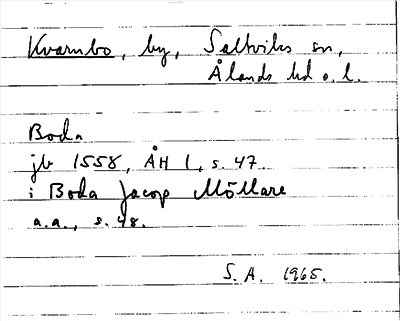 Kvarnbo, by, Saltviks sn,
Ålands hd o. l.
Boda
jb 1558, ÅH 1, s. 47
i Boda Jacop Möllare
a.a., s. 48.
S. A. 1965.